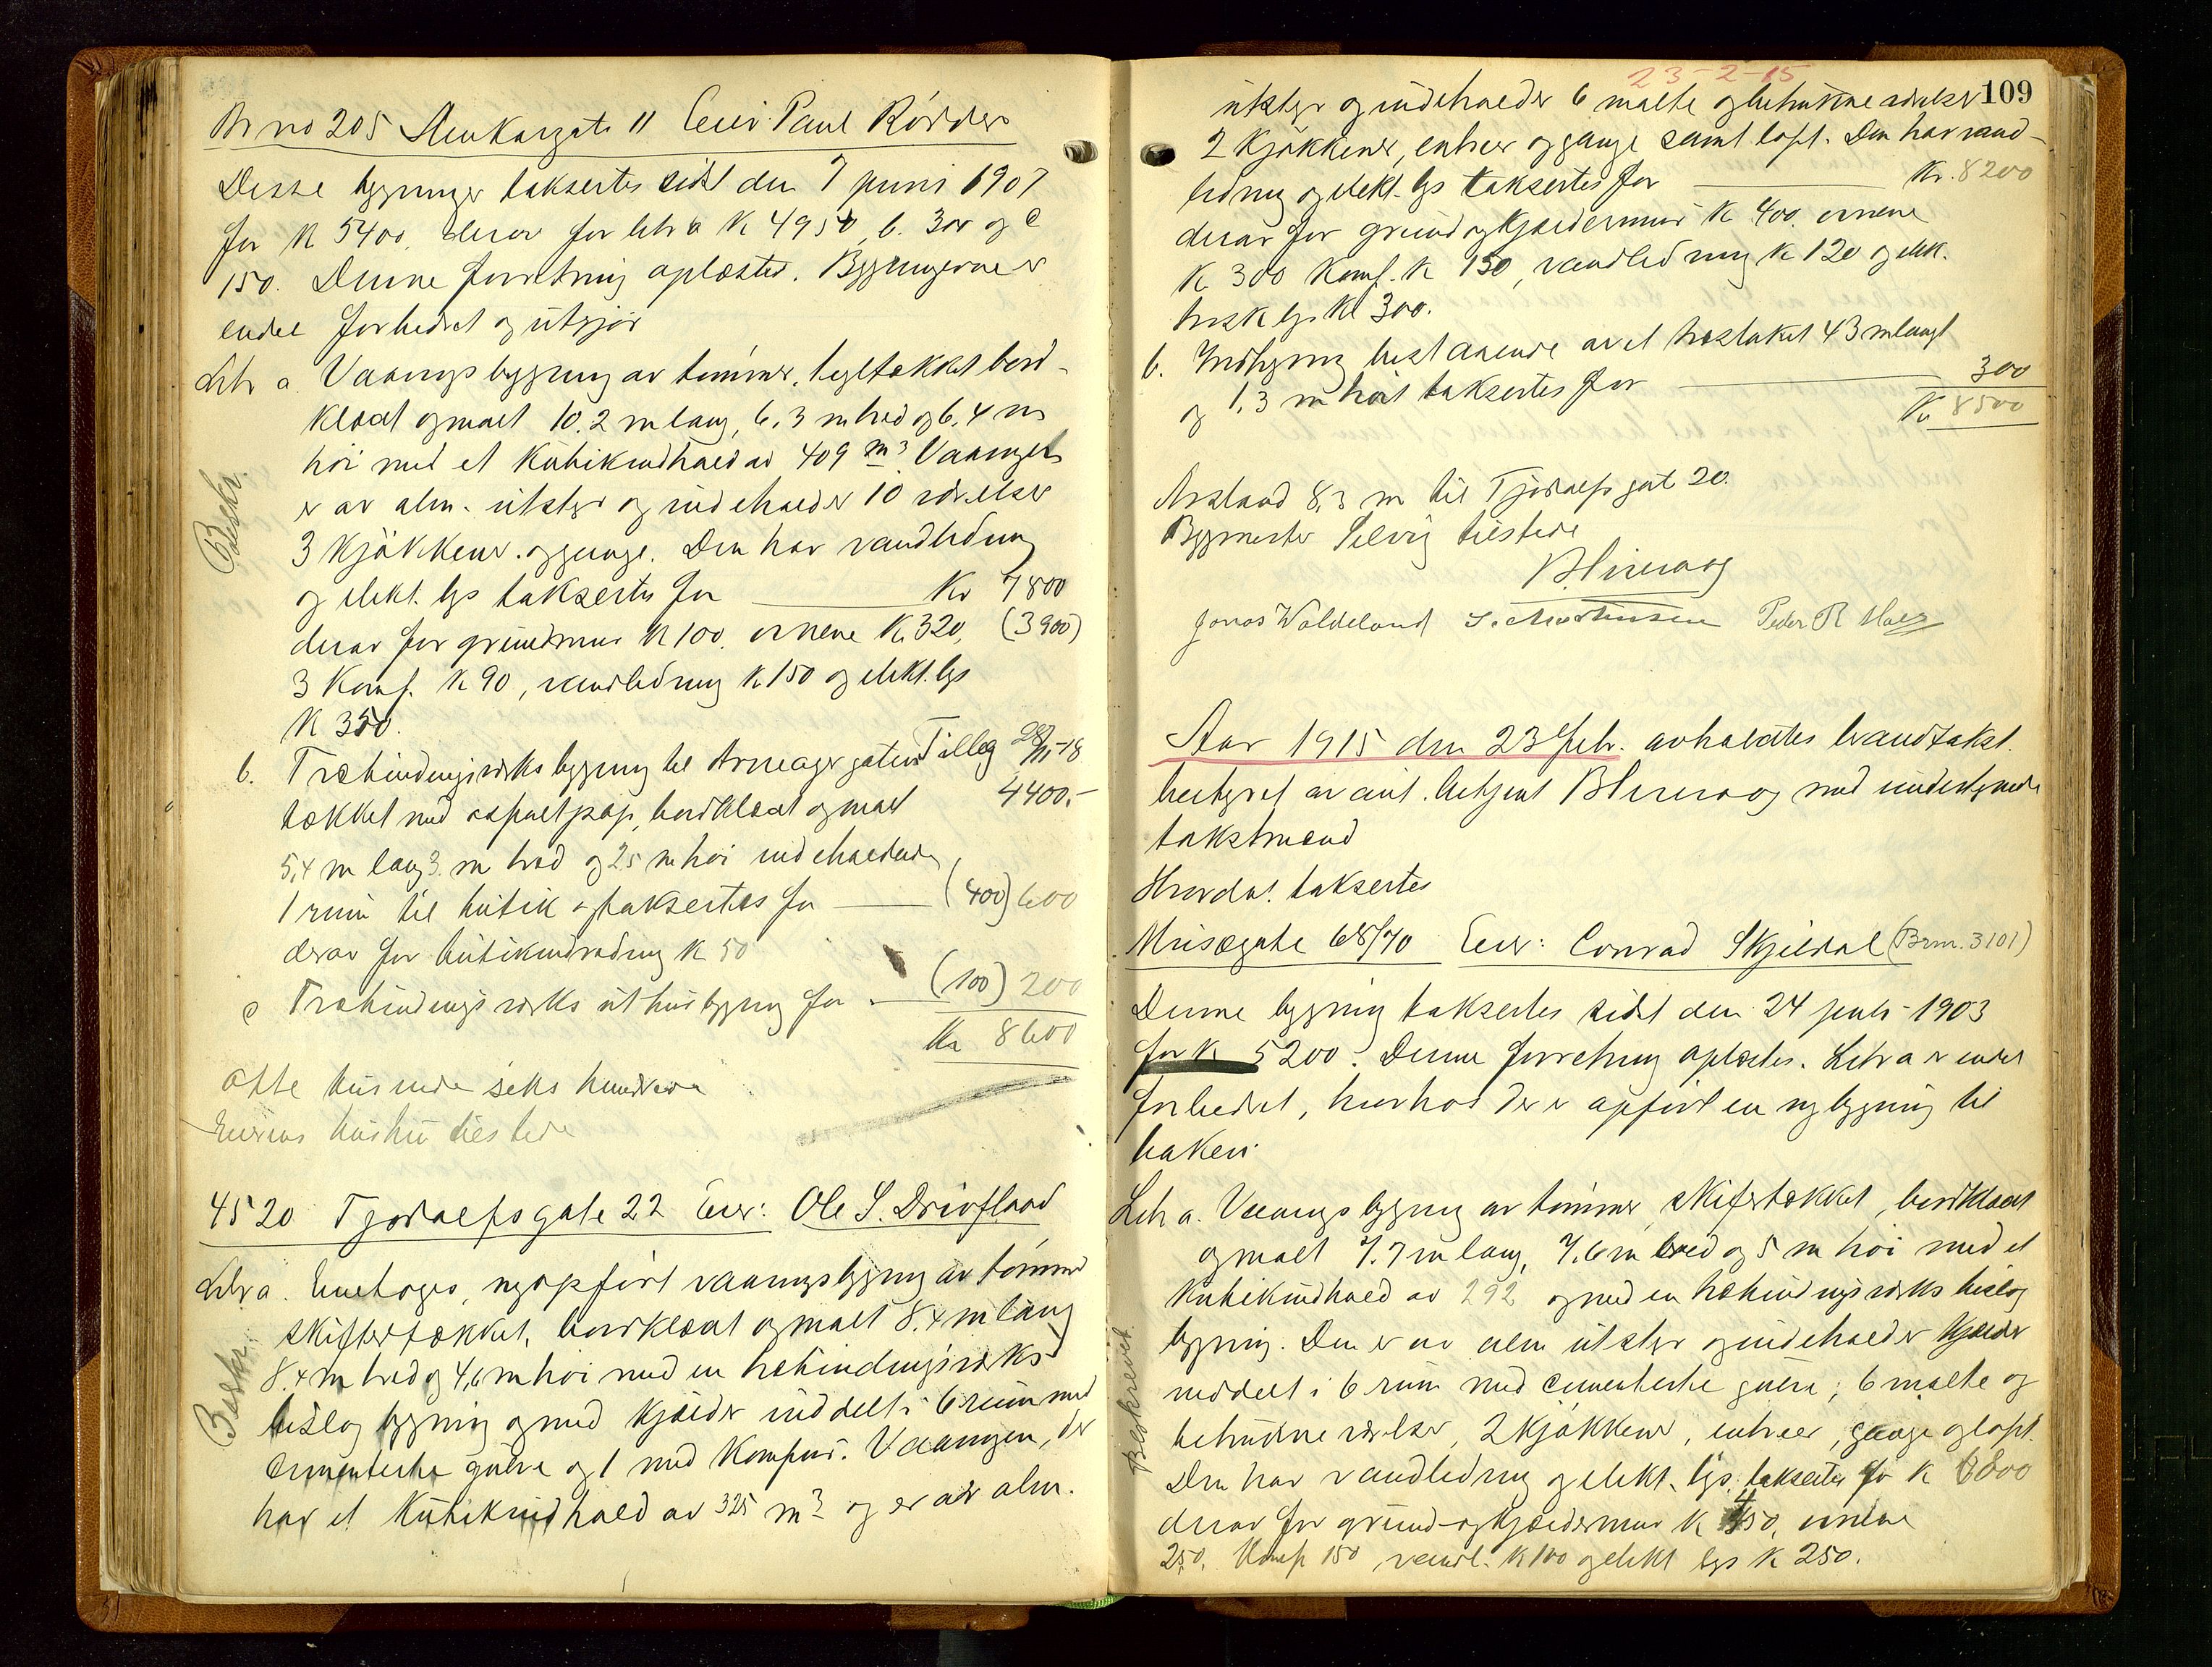 Br no 205 Stenkargate 11 Eier: Paul Rödder
Disse bygninger taksertes sidst den 7 juni 1907
for K 5400, derav for litr a K 4950, b. 300 og c
150. Denne forretning oplæstes. Bygningerne er
endel forbedret og utgjør
Litr a. Vaaningsbygning av tømmer, tegltækket bord-
klædt og malt 10.2 m lang, 6,3 m bred og 6,4 m
høi med et kubikindhold av 409 m³. Vaaningen
er av alm. utstyr og indeholder 10 værelser
3 kjøkkener og gange. Den har vandledning
og elekt. lys taksertes for Kr 7800
derav for grundmur K 100, ovnene K 320, (3900)
3 komf. K 90, vandledning K 150 og elekt. lys
K 350.
b. Træbindingsverks bygning til Armauer gaten Tillæg 28/11-18
tækket med asfaltpap, bordklædt og malt 4400,-
5,4 m lang 3 m bred og 2,5 m høi indeholdende
1 rum til butik og taksertes for (400) 600
derav for butikindredning K 50
c Træbindingsverks uthusbygning for (100) 200
Kr 8600
Otte tusinde seks hundrede
Eierens hustru tilstede
Beskr.
4520 Tjodolfsgate 22 Eier: Ole S. Drivflaad
Litr a. Enetages, nyopført vaaningsbygning av tømmer
skifertækket, bordklædt og malt 8.4 m lang
8.4 m bred og 4,6 m høi med en træbindingsverks
bislag bygning og med kjelder inddelt i 6 rum med
cementerte gulve og 1 med komfur. Vaaningen, der
har et kubikindhold av 325 m³ og er av alm.
Beskr.
23-2-15
109
utstyr og indeholder 6 malte og betrukne værelser
2 kjøkkener, entreer og gange samt loft. Den har vand-
ledning og elekt. lys taksertes for Kr. 8200
derav for grund og kjeldermur K 400, ovnene
K 300 komf. K 150, vandledning K 120 og elek-
trisk lys Kr 300.
b. Indhegning bestaaende av et træstaket 43 m langt
og 1,3 m høit taksertes for 300
Kr 8500
Avstand 8,3 m til Tjodolfs gate 20.
Bygmester Selvig tilstede
Jonas Waldeland S. Martinsen Peder R
Aar 1915 den 23 Febr. avholdtes brandtakst
bestyret av aut. betjent med undertegnede
takstmænd
Hvorda! taksertes
Musægate 68/70 Eier: Conrad Skjeldal (Brnr. 3101)
Denne bygning taksertes sidst den 24 juli 1903
for K 5200. Denne forretning oplæstes. Litr a er endel
forbedret, hvorhos der er opført en ny bygning til
bakeri
Litr a. Vaaningsbygning av tømmer, skifertækket, bordklædt
og malt 7.7 m lang, 7.6 m bred og 5 m høi med et
kubikindhold av 292 og med en træbindingsverks bislag
bygning. Den er av alm utstyr og indeholder kjelder
inddelt i 6 rum med cementerte gulve, 6 malte og
betrukne værelser, 2 kjøkkener, entreer, gange og loft.
Den har vandledning og elekt. lys taksertes for K 6800
derav for grund- og kjeldermur K 450, ovnene
250, Komf 150, vandl. K 100 og elekt lys K 250.
Beskrevet